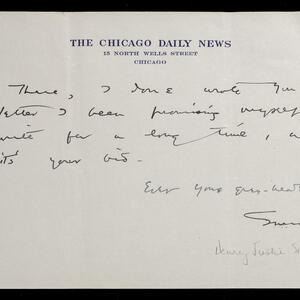 THE CHICAGO DAILY NEWS
15 NORTH WELLS STREET
CHICAGO
There, I done wrote you
letter I been promising myself
write for a long time, a
it's your bid -
Ever yours
Henry Justin S